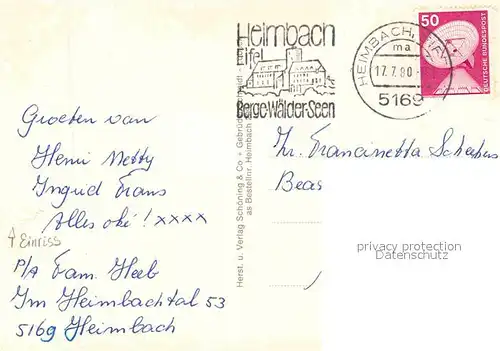 Heimbach
Eifel
Berge-Wälder-Seen
HEIMBACH, EIFEL
ma
17.7.80
5169
50
DEUTSCHE BUNDESPOST
Groeten van
Henri Netty
Ingrid Frans
Alles oké! xxxx
Einriss
P/A Fam. Heeb
Im Heimbachtal 53
5169 Heimbach
Herst. u. Verlag Schöning & Co + Gebrüder Schmidt
as Bestellnr. Heimbach
Francinetta
Beas
privacy protection
Datenschutz